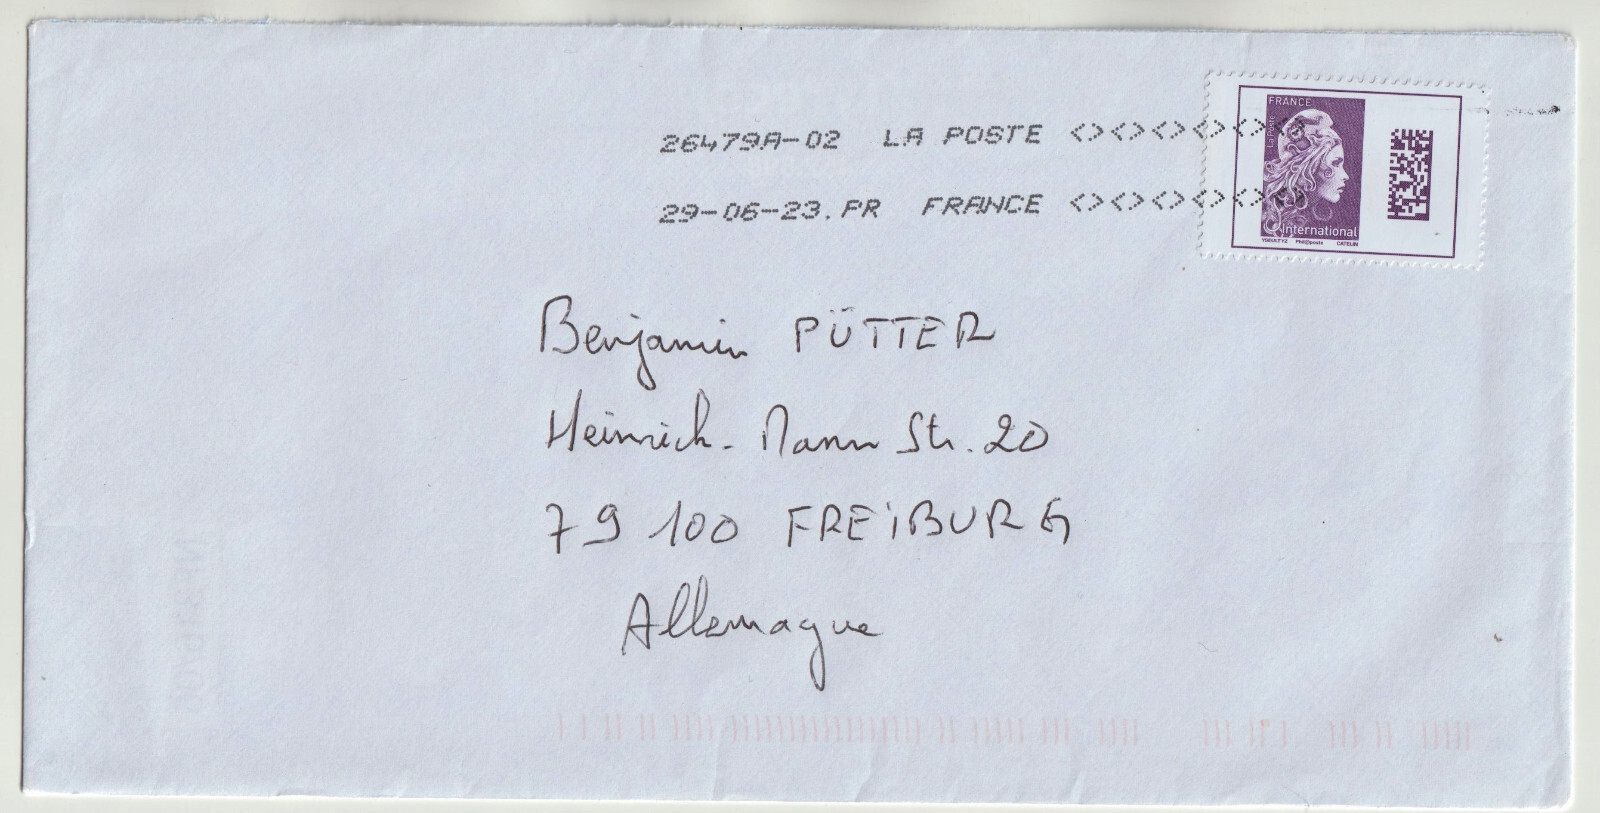 26479A-02 LA POSTE <><><><><>
29-06-23.PR FRANCE <><><><><>
FRANCE
La Poste
International
YSEULTYZ Phil@poste CATELIN
Benjamin PÜTTER
Heinrich-Mann Str. 20
79 100 FREIBURG
Allemagne